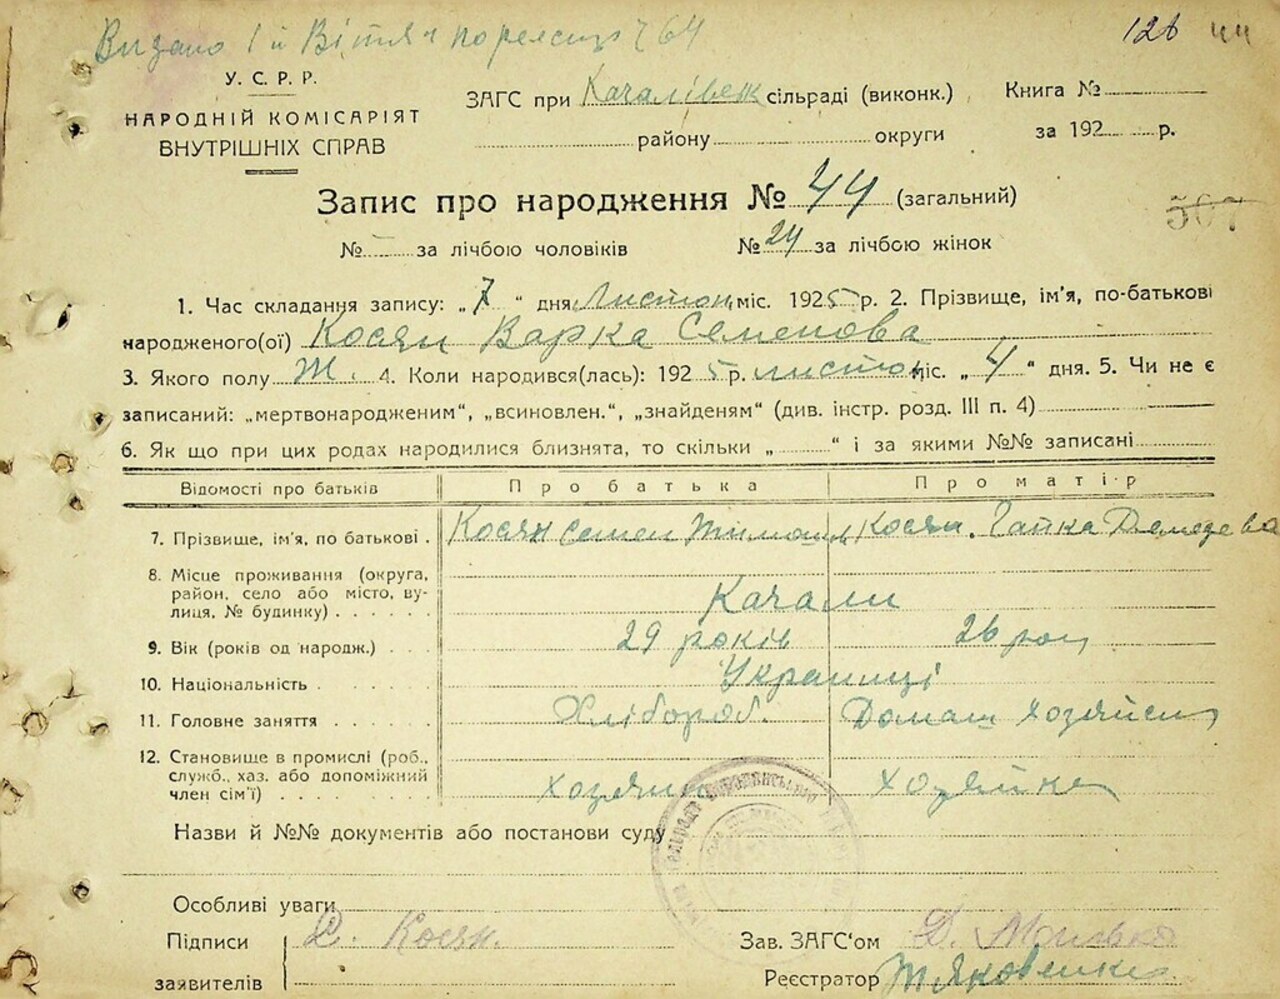 Видано 1 й Витяг 764
126 44
У. С. Р. Р.
НАРОДНІЙ КОМІСАРІЯТ
ВНУТРІШНІХ СПРАВ
ЗАГС при Качалівск сільраді (виконк.)
району округи
Книга №
за 192 р.
Запис про народження № 44 (загальний)
507
№ за лічбою чоловіків № 24 за лічбою жінок
1. Час складання запису: „ 7 “ дня Листоп. міс. 1925 р. 2. Прізвище, ім'я, по-батькові
народженого(ої) Косян Варка Семенова
3. Якого полу Ж. 4. Коли народився(лась): 1925 р. листоп міс. „ 4 “ дня. 5. Чи не є
записаний: „мертвонародженим“, „всиновлен.“, „знайденям“ (див. інстр. розд. III п. 4)
6. Як що при цих родах народилися близнята, то скільки „ “ і за якими №№ записані
Відомості про батьків Про батька Про матір
7. Прізвище, ім'я, по батькові . Косян Семен Косян. Гапка
8. Місце проживання (округа,
район, село або місто, ву-
лиця, № будинку) . . . . . Качали
9. Вік (років од народж.) . . . 29 років 26 рок
10. Національність . . . . . . Украінці
11. Головне заняття . . . . . . Хлібороб. Домаш хозяйст
12. Становище в промислі (роб.,
служб., хаз. або допоміжний
член сім'ї) . . . . . . . . хозяин хозяйка
Назви й №№ документів або постанови суду
Особливі уваги
Підписи С. Косян. Зав. ЗАГС'ом Д.
заявителів Реєстратор Яковенко